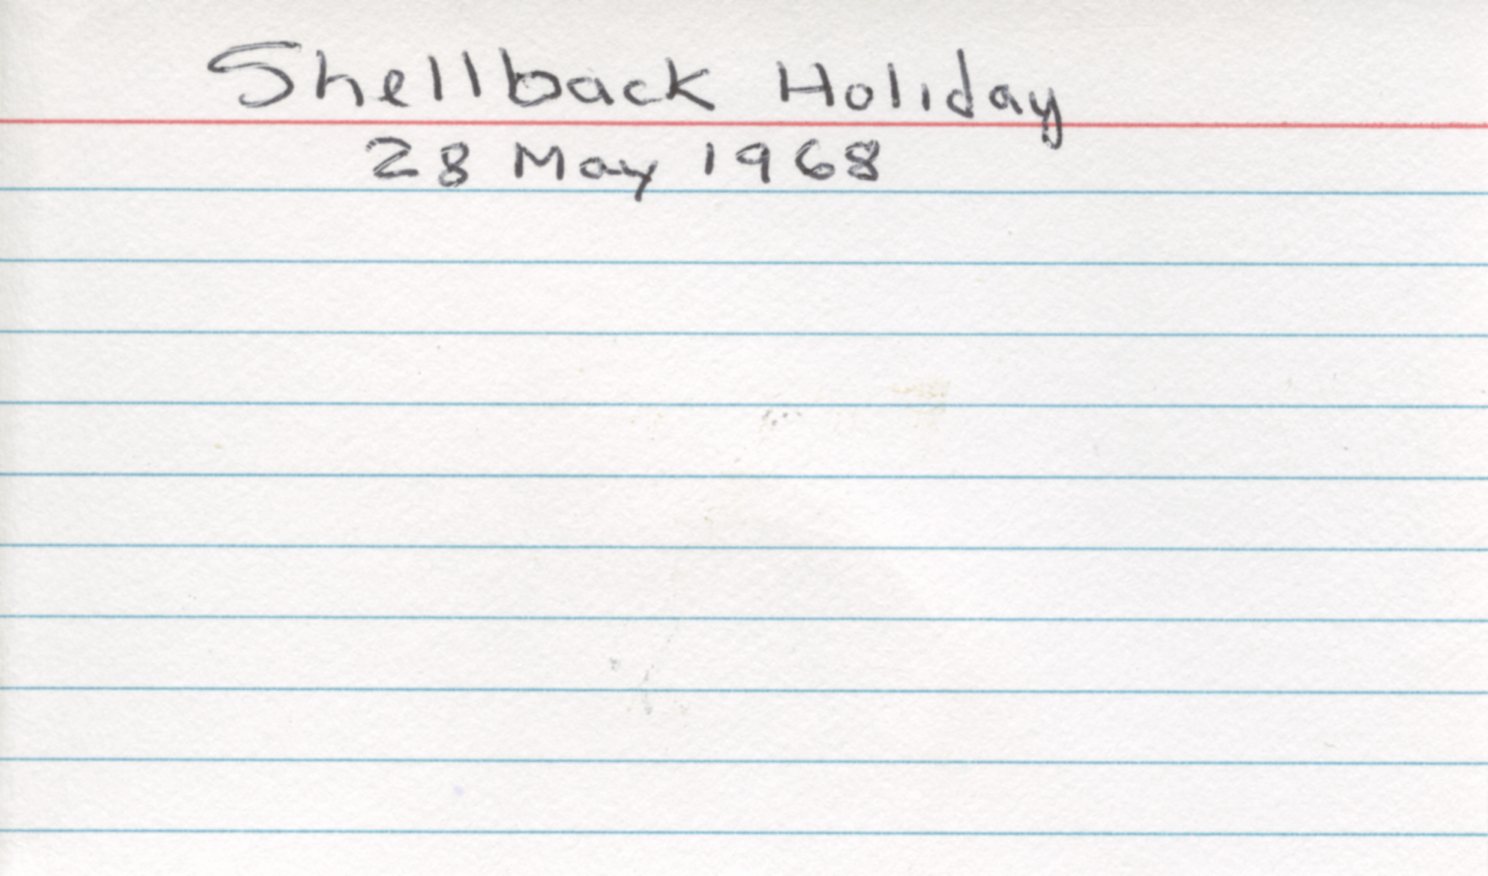 Shellback Holiday
28 May 1968